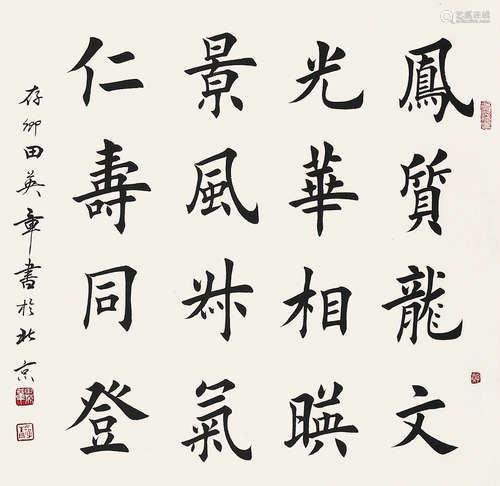 鳳質龍文
光華相暎
景風淑氣
仁壽同登
存卿田英章書於北京